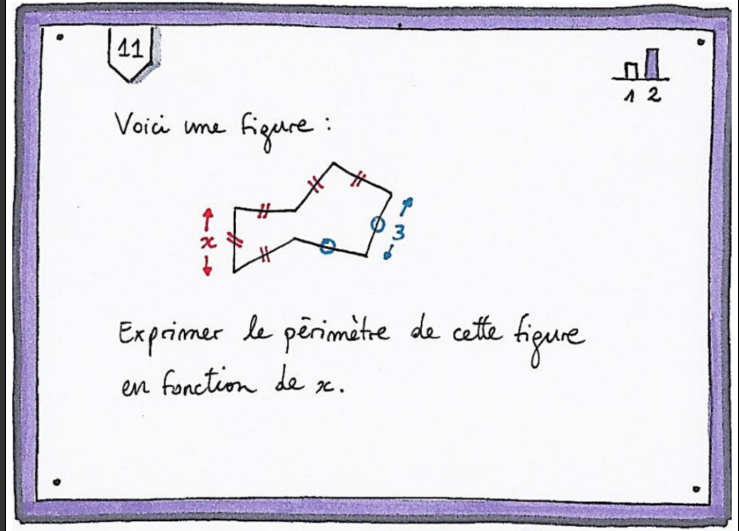 11
1 2
Voici une figure :
x
3
Exprimer le périmètre de cette figure
en fonction de x.